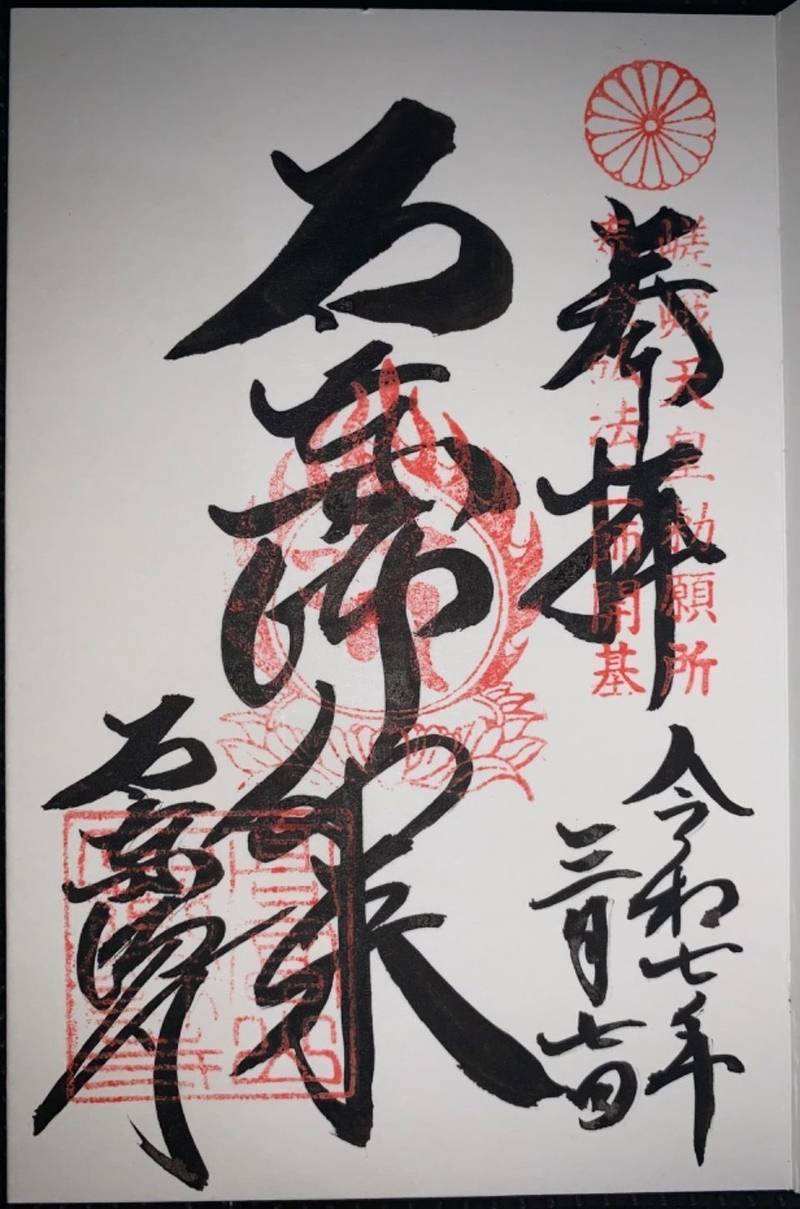 奉拝
嵯峨天皇勅願所
弘法 師開基
令和七年
三月七日
石薬師如来
石薬師寺